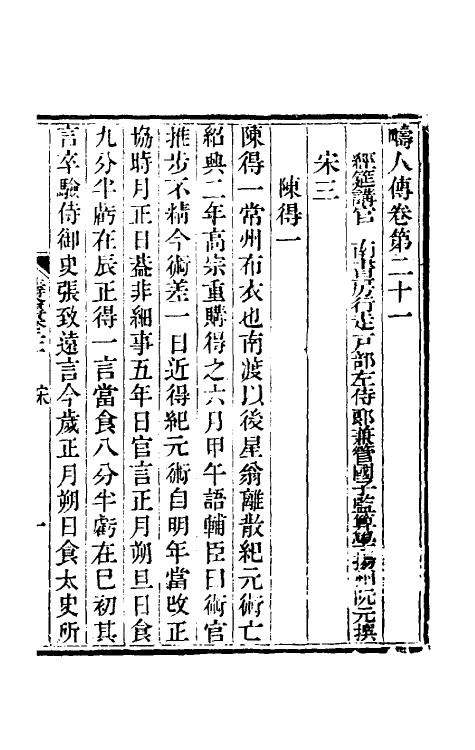 疇人傳卷第二十一
經筵講官 南書房行走戶部左侍郎兼管國子監算學揚州阮元撰
宋三
陳得一
陳得一常州布衣也南渡以後星翁離散紀元術亡
紹興二年高宗重購得之六月甲午語輔臣曰術官
推步不精今術差一日近得紀元術自明年當改正
協時月正日葢非細事五年日官言正月朔旦日食
九分半虧在辰正得一言當食八分半虧在巳初其
言卒驗侍御史張致遠言今歲正月朔日食太史所
宋
一